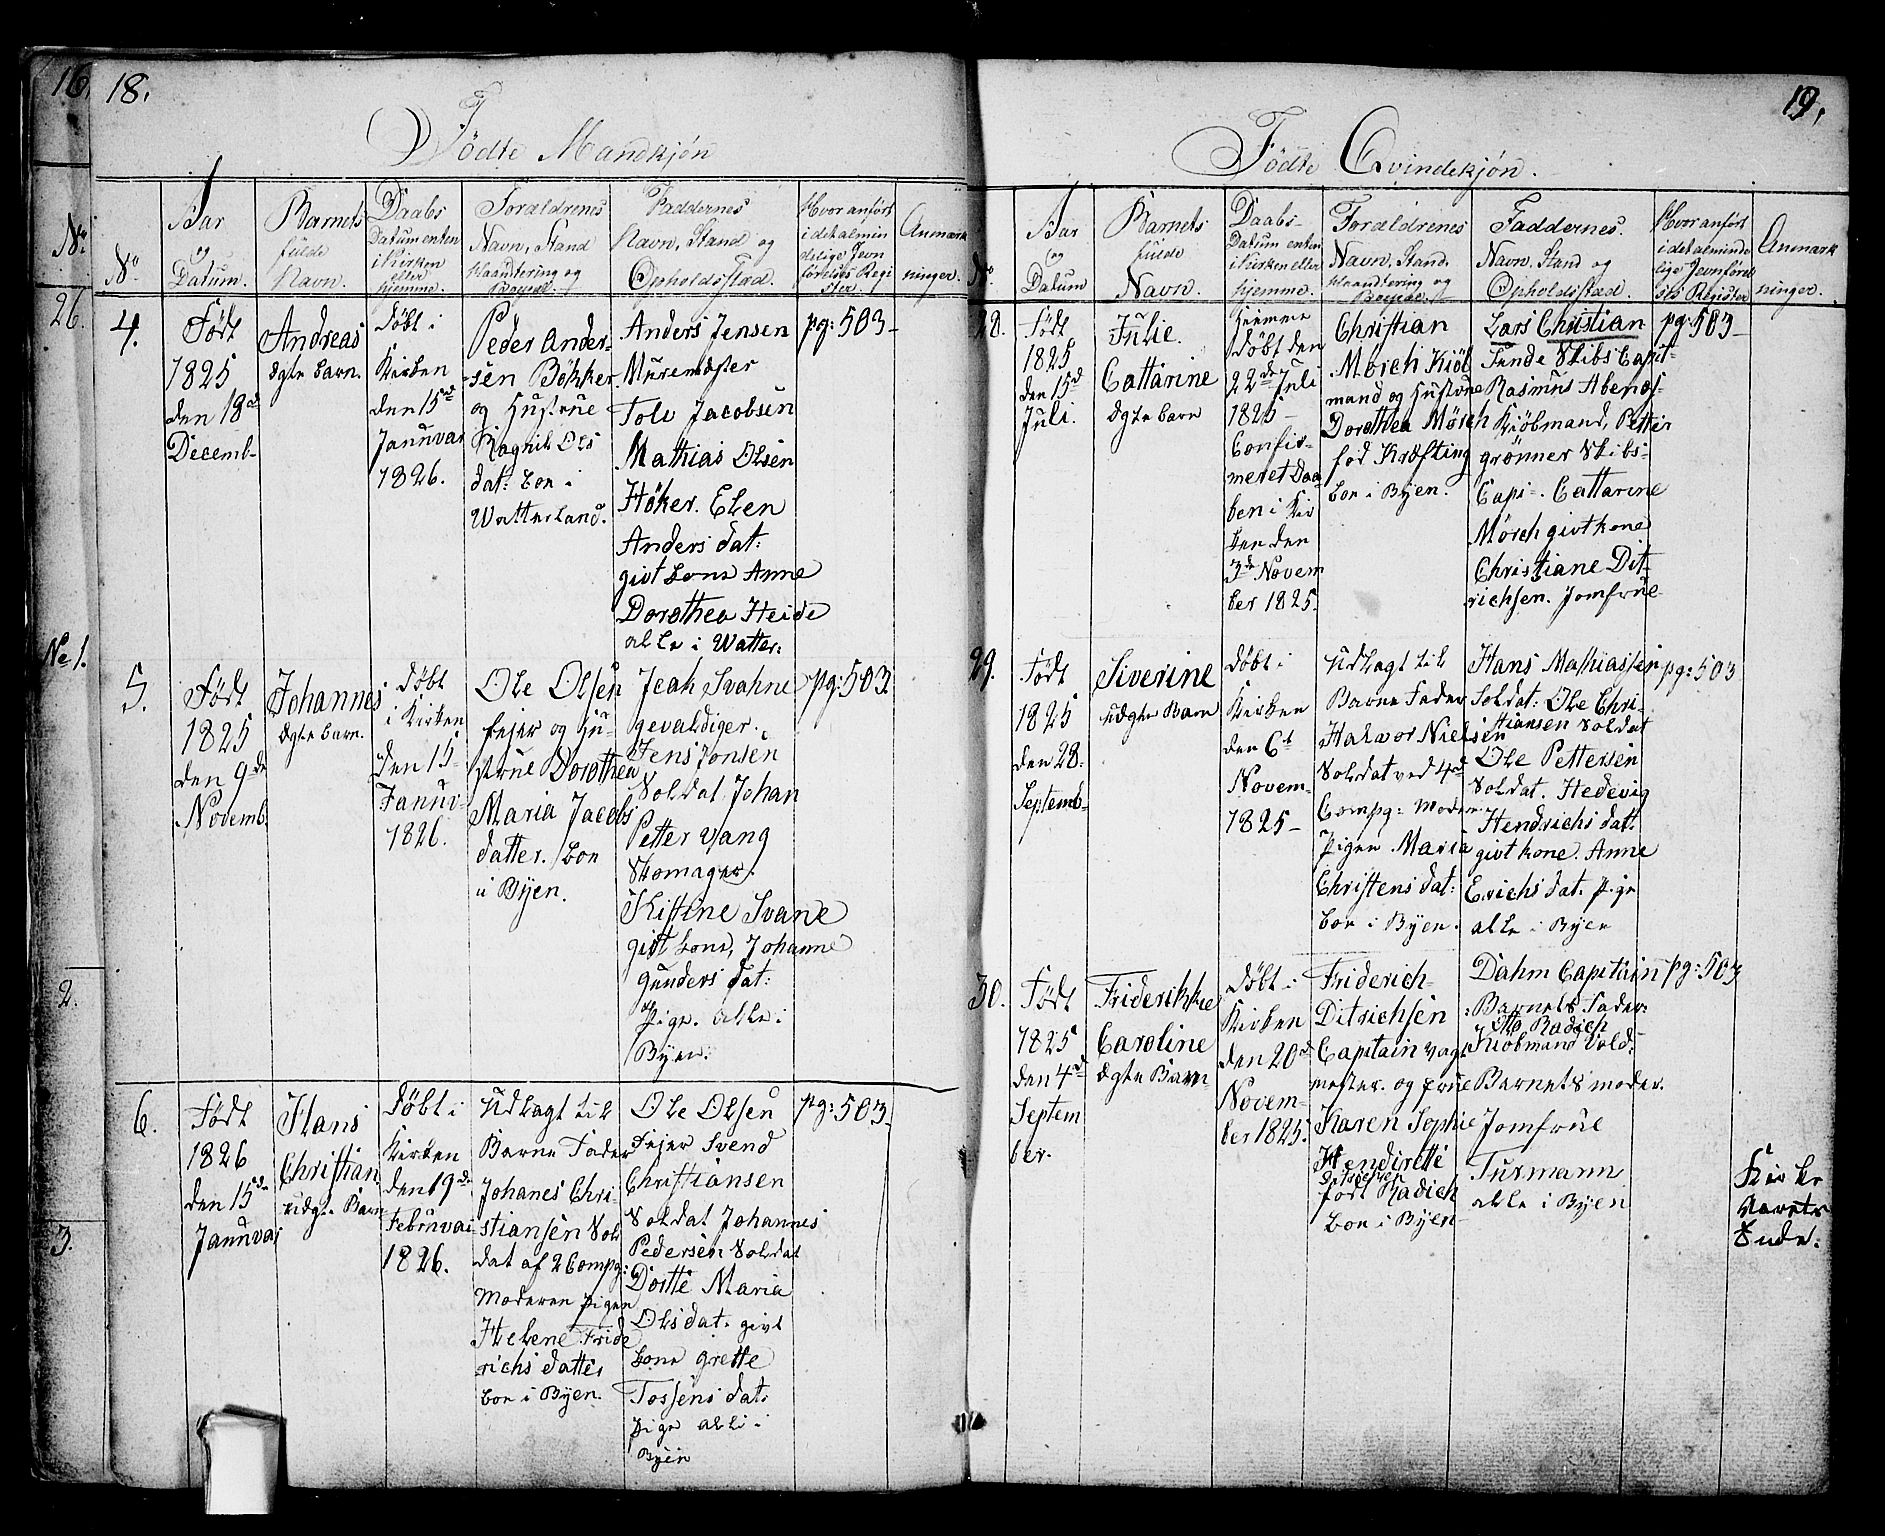 16.
18.
Födte Mandkjön
No
Aar
og
Datum.
Barnets
fulde
Navn.
Daabs
Datum enten
i Kirken
eller
hjemme.
Forældrenes
Navn, Stand
Haandtering og
Faddernes
Navn, Stand og
Opholdsstad.
Hvor anfört
i det almin
delige Jevn
förelses Regi
ster.
Anmærk
ninger.
No
26.
No 1.
2.
3.
4.
Födt
1825
den 18de
Decemb-
Andreas
ægte barn.
Döbt i
Kirken
den 15de
Januvar
1826.
Peder Ander-
sen Bökker
og Hustrue
Ragnil Ols
dat: boe i
Watterland.
Anders Jensen
Muremæster
Tole Jacobsen
Mathias Olsen
Höker. Elen
Anders dat:
givt kone Anne
Dorothea Heide
alle i Watter:
pg: 503-
5.
Födt
1825
den 9de
Novemb
Johannes
ægte barn.
Döbt
i Kirken
den 15
Januv-
1826.
Ole Olsen
fejer og Hu-
strue Dorothea
Maria Jacobs
datter. boe
i Byen.
Jeah Svahne
gevaldiger.
Jens Jonsen
Soldat Johan
Petter Vang
Skomager.
Kistine Svane
givt kone, Johanne
Gunders dat:
Pige. alle i
Byen.
pg: 503.
6.
Födt
1826
den 15de
Januvar
Hans
Christian
uægte Barn
Döbt i
Kirken
den 19de
Februvar
1826.
Udlagt til
Barne Fader
Johanes Chri-
stiansen Sol
dat af 2 Compg:
Moderen pigen
Helene Fride
richs datter
boe i Byen.
Ole Olsen
Fejer Svend
Christiansen
Soldat Johannes
Pedersen Soldat
Dortte Maria
Olsdat. givt
kone Grette
Tossens dat.
Pige alle i
Byen
pg: 503.
19.
Födte Qvindekjön.
No
Aar
og
Datum
Barnets
fulde
Navn.
Daabs-
Datum enten
i Kirken eller
hjemme.
Forældrenes
Navn, Stand.
Haandtering og
Faddernes.
Navn, Stand og
Opholdsstad.
Hvor anfört
i det alminde
lige Jevnförel
ses Register
Anmærk
ninger.
28.
Födt
1825
den 15d
Juli.
Julie.
Cattarine
ægte barn
hjemme
döbt den
22de Juli
1825-
Confir-
meret Daa
ben i Kir
ken den
3de Novem
ber 1825.
Christian
Mörch Kiöb
mand og Hustrue
Dorothea Mörch
fod Kræfting
boe i Byen.
Lars Christian
Funde Skibs Capit-
Rasmus
Kiöbmand, Petter
Grönner Skibs-
Capi-. Cattarine
Mörch givt kone
Christiane Dit-
richsen. Jomfrue
pg: 503-
29.
Födt
1825
den 28.
Septemb-
Siverine
uægte Barn
Döbt i
Kirken
den 6t
Novem-
1825-
Udlagt til
Barne Fader
Halvor Nielsen
Soldat ved 4de
Compg: Moder
Pigen Maria
Christens dat:
boe i Byen.
Hans Mathiassen
Soldat: Ole Chri-
stiansen Soldat
Ole Pettersen
Soldat. Hedevig
Hendrichs dat.
givt kone. Anne
Erichs dat. pige
alle i Byen
pg: 503
30.
Födt
1825
den 4d
Septem
ber.
Friderikke
Caroline
ægte Barn
Döbt i
Kirken
den 20de
Novem-
ber 1825.
Friderich
Ditrichsen
Capitain Vagt
mester. og frue
Karen Sophie
Hendirette
Ditrichsen
födt Radich
boe i Byen-
Dahm Capitain
Barnets Fader:
Otto Radich
Kiöbmand Vold:
Barnets moder.
Jomfrue
Turmann
alle i Byen
pg: 503
Kirke
Aarets
Ende.